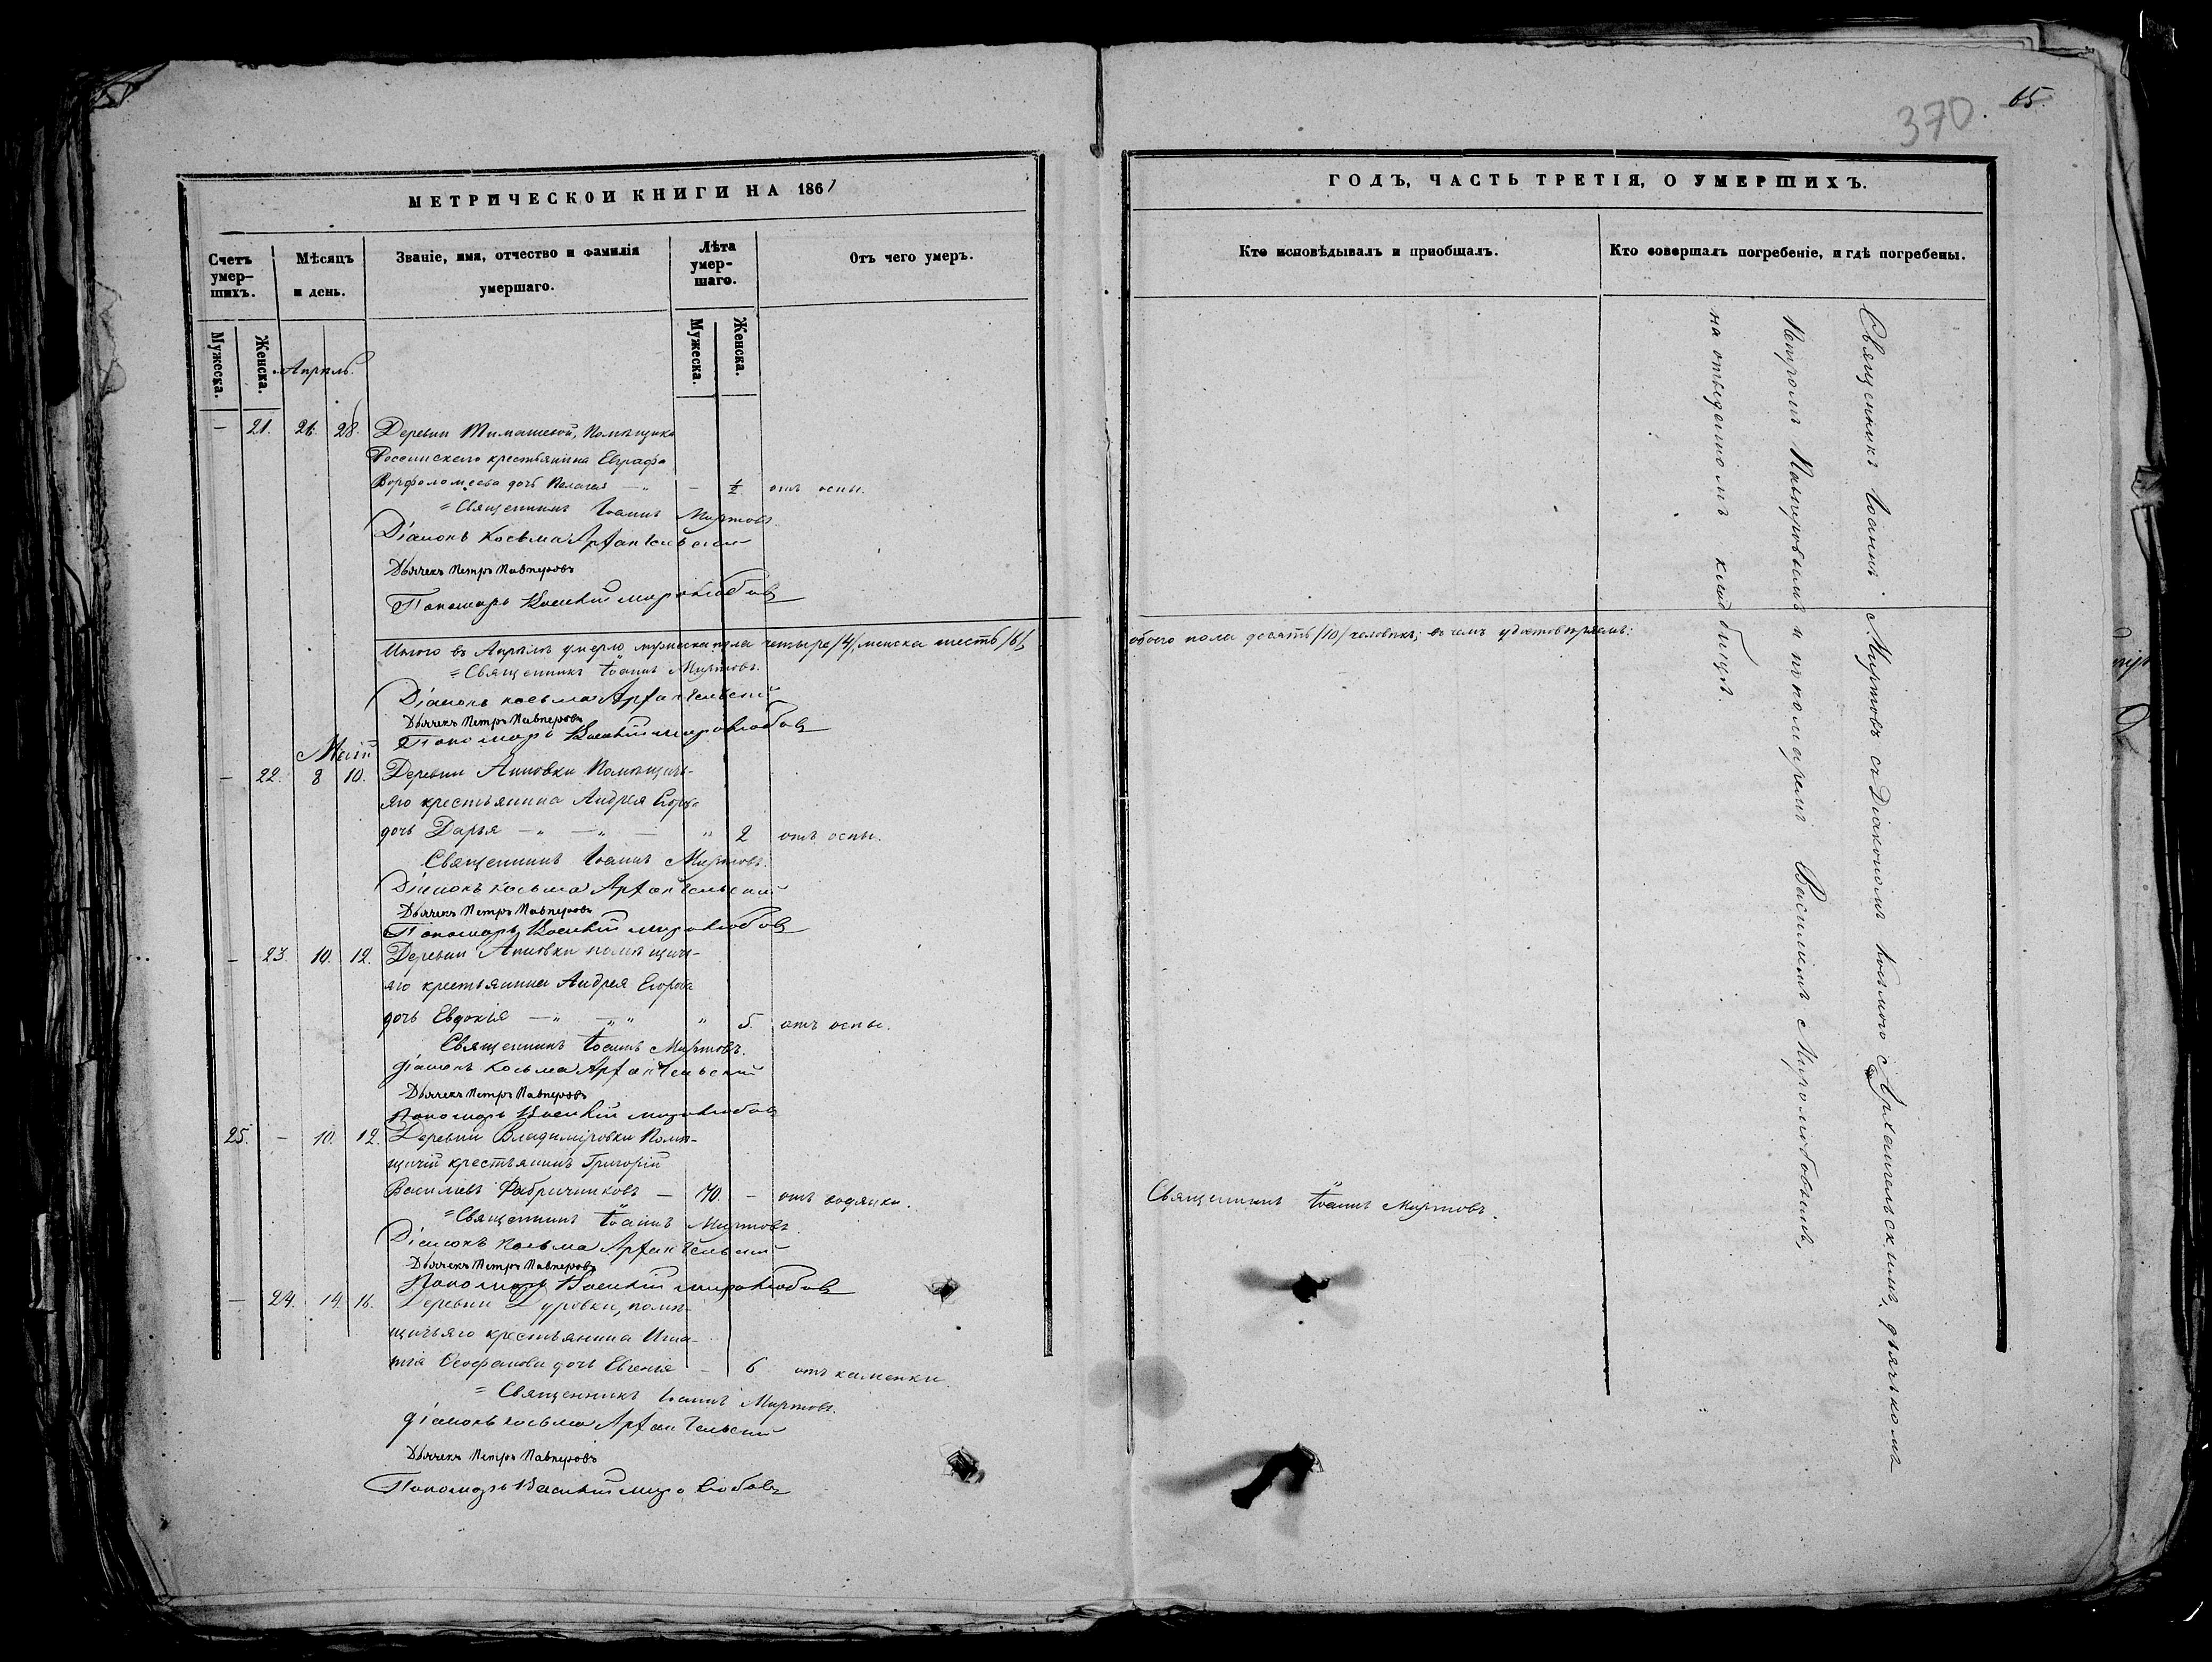 370. 65.
МЕТРИЧЕСКОЙ КНИГИ НА 1861
Счетъ умер-
шихъ.
Мѣсяцъ
и день.
Званіе, имя, отчество и фамилія
умершаго.
Лѣта
умер-
шаго.
Отъ чего умеръ.
Мужеска.
Женска.
Мужеска.
Женска.
Апрѣль.
— 21. 26. 28. Деревни Тимашевой, Помѣщика
Россинскаго крестьянина Евграфа
Ворфоломеева дочь Пелагея — „ — ½ отъ оспы.
= Священникъ Іоаннъ Миртовъ.
Діаконъ Косьма Архангельскій
Дьячекъ Петръ Павперовъ
Пономарь Василій Миролюбовъ
Итого въ Апрѣлѣ умерло мужеска пола четыре /4/, женска шесть /6/
= Священникъ Іоаннъ Миртовъ.
Діаконъ Косьма Архангельскій
Дьячекъ Петръ Павперовъ
Пономарь Василій Миролюбовъ
Май
— 22. 8 10. Деревни Анновки Помѣщичь-
яго крестьянина Андрея Егорова
дочь Дарья — „ — „ — „ 2 отъ оспы.
Священникъ Іоаннъ Миртовъ.
Діаконъ Косьма Архангельскій
Дьячекъ Петръ Павперовъ
Пономарь Василій Миролюбовъ
— 23. 10. 12. Деревни Анновки помѣщичь-
яго крестьянина Андрея Егорова
дочь Евдокія — „ — „ „ „ 5. отъ оспы.
Священникъ Іоаннъ Миртовъ.
Діаконъ Косьма Архангельскій
Дьячекъ Петръ Павперовъ
Пономарь Василій Миролюбовъ
25. — 10. 12. Деревни Владиміровки Помѣ-
щичій крестьянинъ Григорій
Васильевъ Фабричниковъ — 70. — отъ водянки.
= Священникъ Іоаннъ Миртовъ.
Діаконъ Косьма Архангельскій
Дьячекъ Петръ Павперовъ
Пономарь Василій Миролюбовъ
— 24. 14. 16. Деревни Дуровки, помѣ-
щичьяго крестьянина Игна-
тія Ѳеофанова дочь Евгенія — 6 отъ каменки.
= Священникъ Іоаннъ Миртовъ.
Діаконъ Косьма Архангельскій
Дьячекъ Петръ Павперовъ
Пономарь Василій Миролюбовъ
ГОДЪ, ЧАСТЬ ТРЕТІЯ, О УМЕРШИХЪ.
Кто исповѣдывалъ и пріобщалъ.
Кто совершалъ погребеніе, и гдѣ погребены.
обоего пола десять /10/ человѣкъ; въ чемъ удостовѣряемъ:
Священникъ Іоаннъ Миртовъ.
Священникъ Іоаннъ Миртовъ съ Діакономъ Косьмою Архангельскимъ, дьячкомъ
Петромъ Павперовымъ и пономаремъ Василіемъ Миролюбовымъ,
на отведенномъ кладбищѣ.